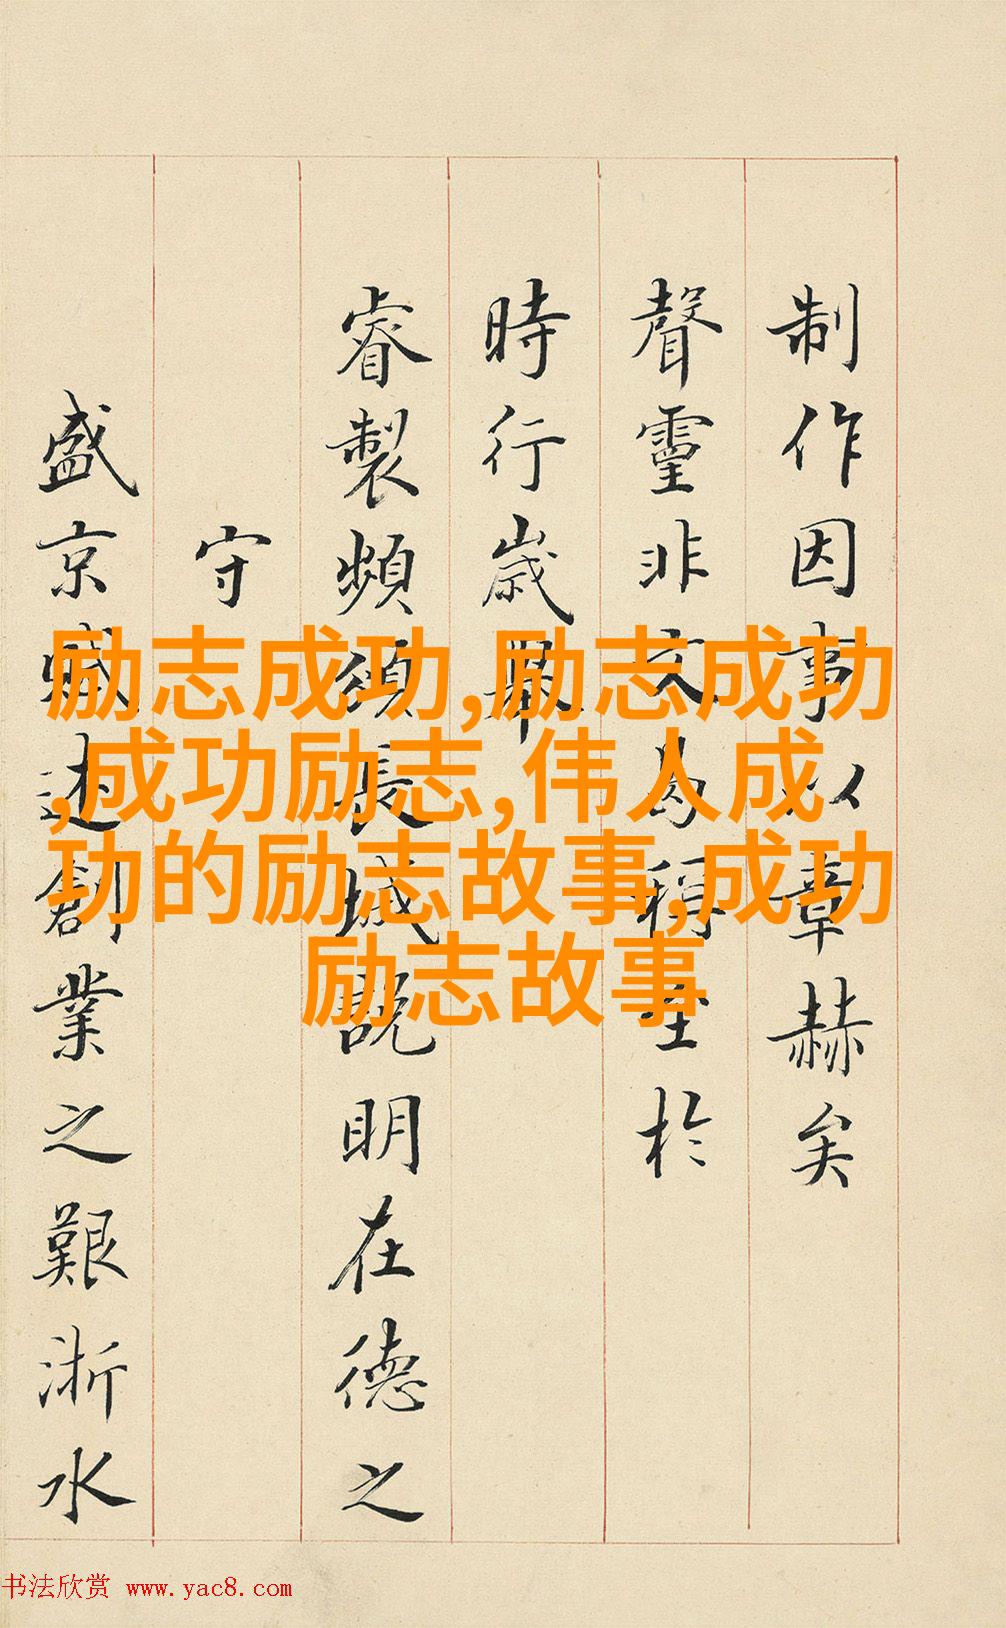 制作因事以章赫矣
聲靈非文為稱至於
時行歲舉
睿製頻頒長城說明在德之
守
盛京賦述創業之艱浙水
励志成功,励志成功
,成功励志,伟人成
功的励志故事,成功
励志故事
书法欣赏 www.yac8.com